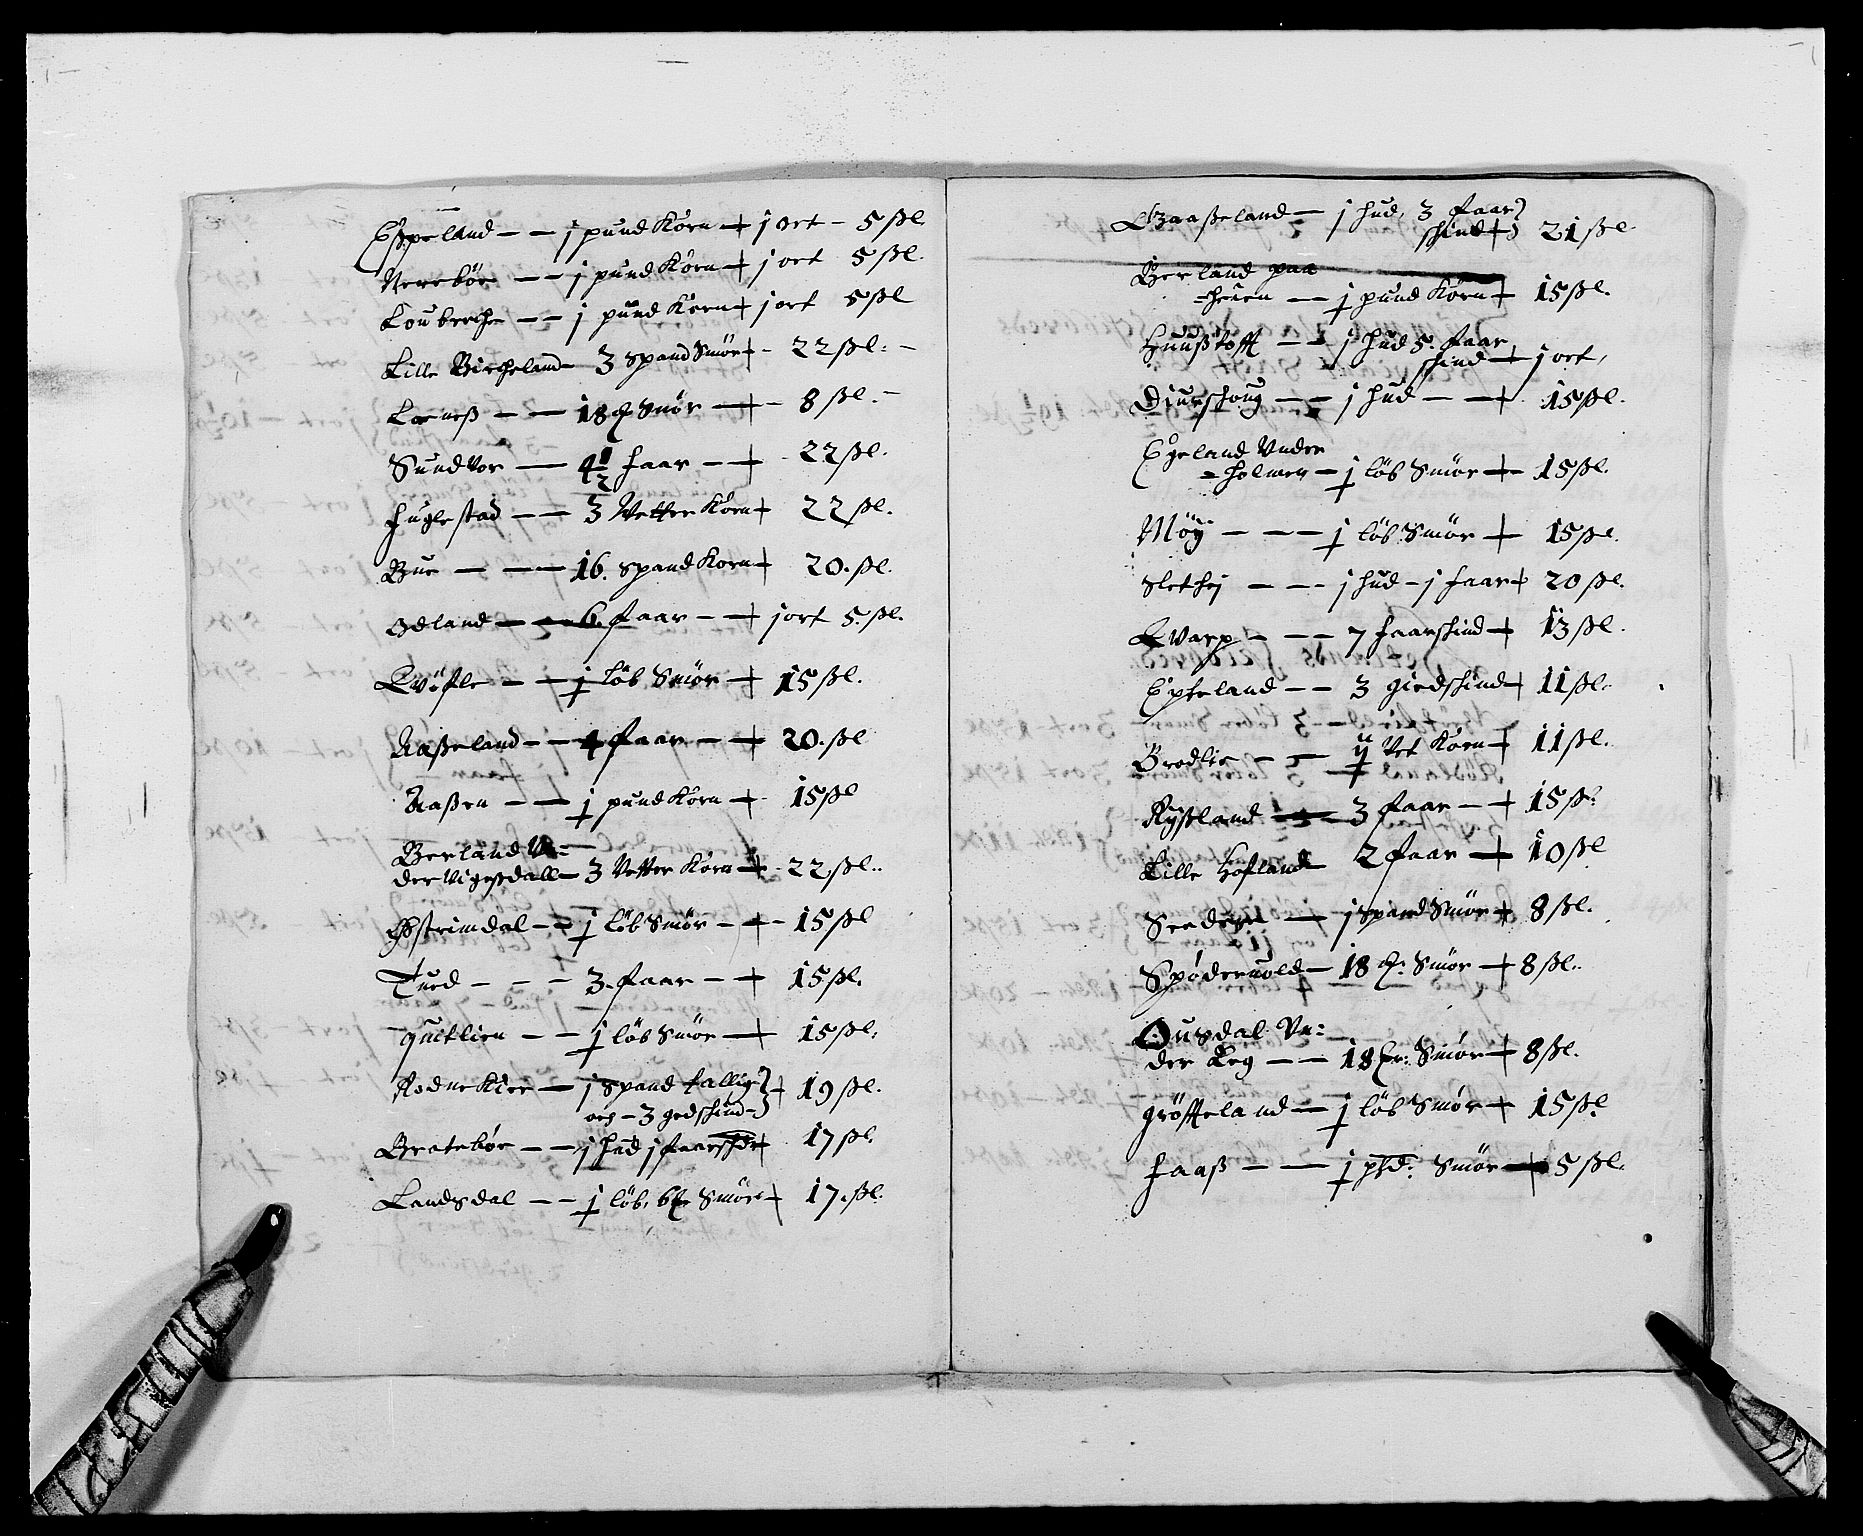 Espeland – – j pund Korn + j ort – 5 ßl
Nerebôe – – j pund Korn + j ort 5 ßl.
Loubreche – – j pund Korn + j ort 5 ßl
Lille Bircheland – 3 Spand Smör + – 22 ßl. –
Leeneß – – 18 Smör + – 8 ßl. –
Sundvor – 4½ faar – + 22 ßl.
fuglestad – – 3 Vetter Korn + 22 ßl.
Bue – – – 16. Spand Korn + 20. ßl.
Odland – – 6. faar – + j ort 5. ßl.
Qvöfle – – j löb Smör + 15 ßl.
Aaßeland – – 4 faar – + 20. ßl
Aaßen – – j pund Korn + 15 ßl
Berland Vn=
der Vigeßdall – 3 Vetter Korn + – 22 ßl..
Østrimdal – – j löb Smör – + – 15 ßl
Tued – – – 3. faar – + 15 ßl.
quitlien – – j löb Smör + 15 ßl.
Rodnekier – j spand tallig }
och – 3 gedskind – } + 19 ßl.
Bratebôe – – j hud j faarskd + 17 ßl.
Landsdal – – j löb, 6 Smör + 17. ßl.
Graaßeland – j hud, 3 faar }
skind + } 21 ßl
Berland paa
=heien – j pund Korn + 15 ßl.
Huußtofft – – j hud 5. faar
skind + j ort.
Diurskoug – – j hud – – + 15 ßl.
Egeland Vnder
=holmen – j löb Smör + 15 ßl.
Möÿ – – – j löb Smör + 15 ßl.
Slethej – – – j hud – j faar + 20 ßl.
Qvarp – – – 7 faarskind + 13 ßl.
Epteland – – 3 giedskind + 11 ßl.
Brodlie – – ij Vet Korn + 11 ßl.
Rÿßland – 3 faar – + 15 ß
Lille Hofland 2 faar + 10 ßl
– j spand Smör + 8 ßl.
Spödervold – 18 Smör + 8 ßl.
Ousdal Vn=
der Leg – – 18 Smör + 8 ßl.
gröffteland – j löb Smör + 15 ßl
faaß – – – j pfd: Smör + 5 ßl.